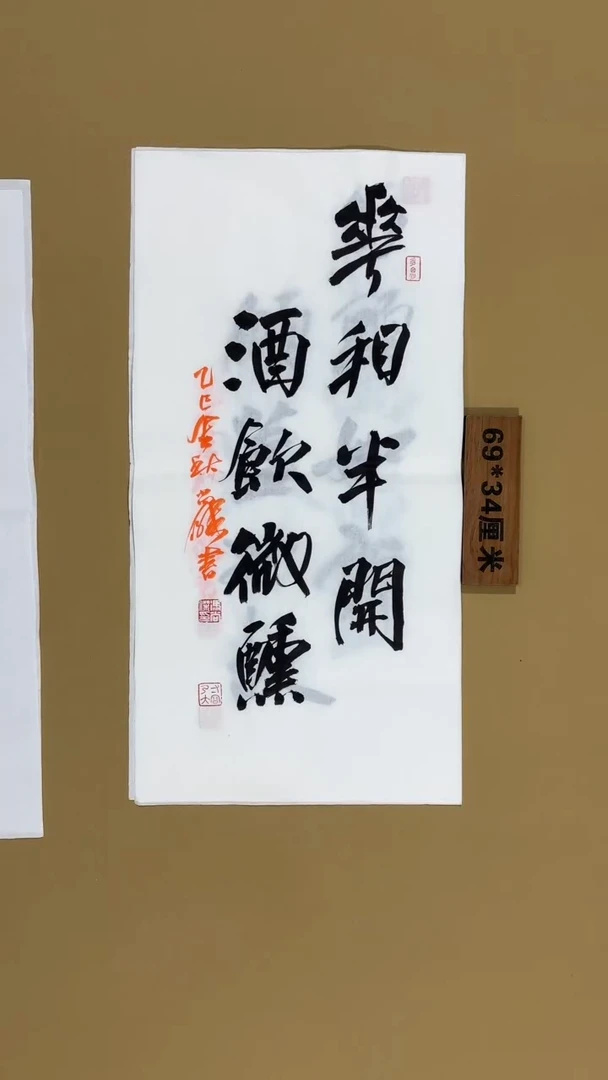 華相半開
酒飲微醺
乙巳金秋 書
69*34厘米